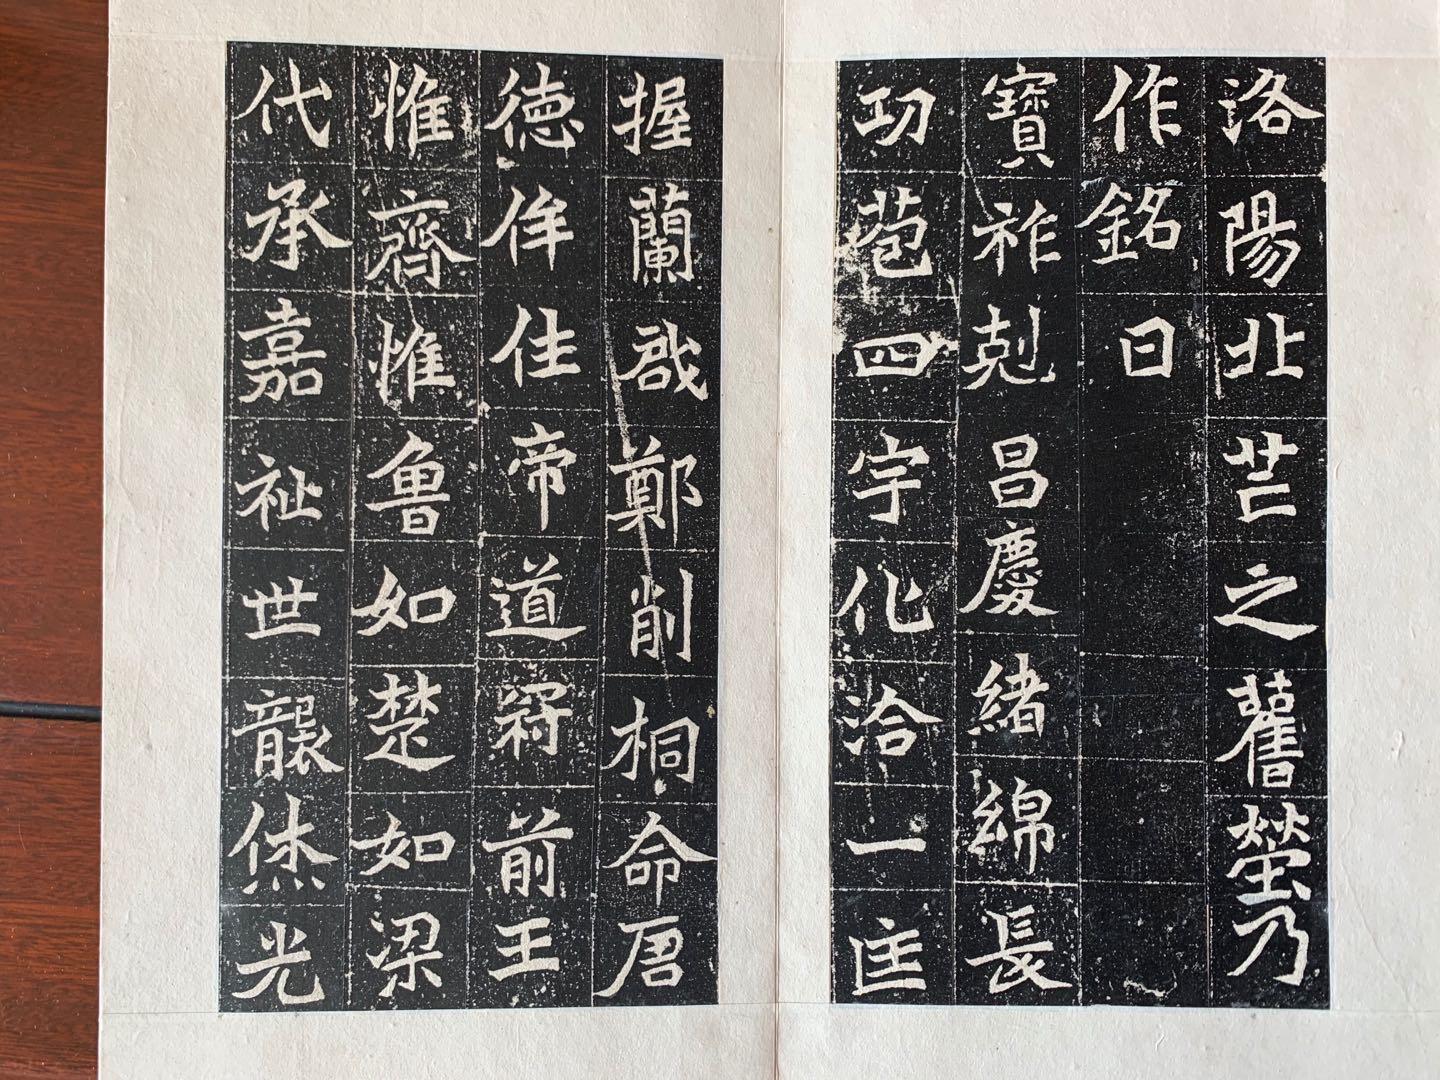 洛陽北芒之舊塋乃
作銘曰
寶祚剋昌慶緒綿長
功苞四宇化洽一匡
握蘭啟鄭削桐命唐
德侔往帝道冠前王
惟齊惟魯如楚如梁
代承嘉祉世襲休光